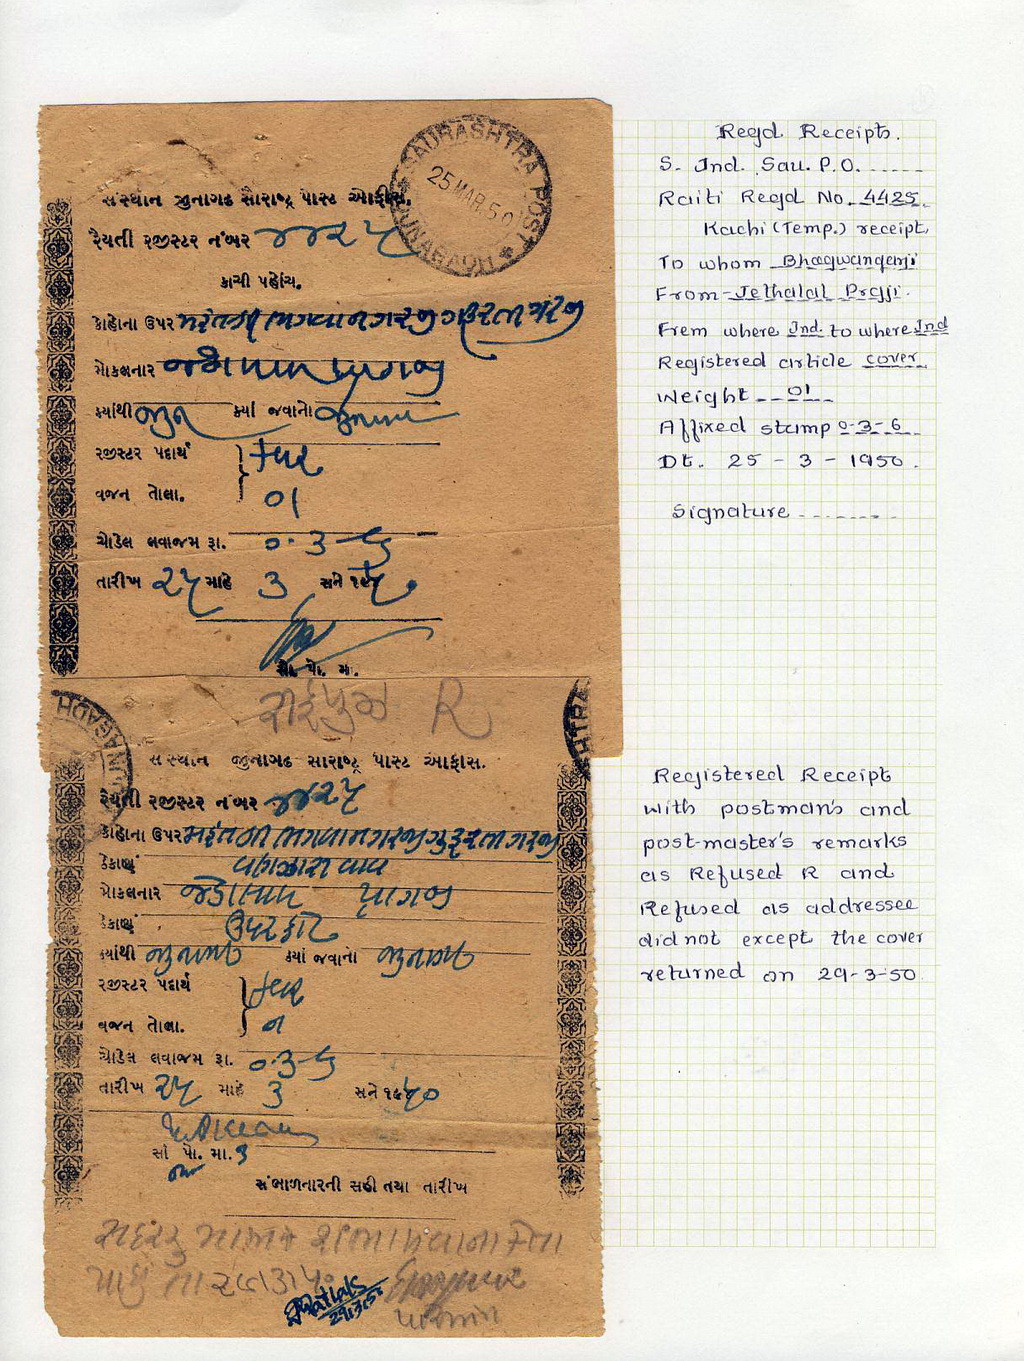 SAURASHTRA POST
25 MAR. 50
JUNAGADH
સંસ્થાન જીનાગઢ સૌરાષ્ટ્ર પોસ્ટ ઓફીસ.
રૈયતી રજીસ્ટર નંબર ૪૪૨૫
કાચી પહોંચ.
કોહોના ઉપર
મોકલનાર જેઠાલાલ પ્રાગજી
ક્યાંથી જુના ક્યાં જવાનો
રજીસ્ટર પદાર્થ કવર
વજન તોલા. ૦૧
ચોડેલ લવાજમ રૂા. ૦-૩-૬
તારીખ ૨૫ માહે ૩ સને ૧૯૫૦
સૌ. પો. મા.
R
JUNAGADH
HTRA
સંસ્થાન જીનાગઢ સૌરાષ્ટ્ર પોસ્ટ ઓફીસ.
રૈયતી રજીસ્ટર નંબર ૪૪૨૫
કોહોના ઉપર
ઠેકાણું વણઝારી વાવ
મોકલનાર જેઠાલાલ પ્રાગજી
ઠેકાણું ઉપરકોટ
ક્યાંથી જુનાગઢ ક્યાં જવાનો જુનાગઢ
રજીસ્ટર પદાર્થ કવર
વજન તોલા. ૦૧
ચોડેલ લવાજમ રૂા. ૦-૩-૬
તારીખ ૨૫ માહે ૩ સને ૧૯૫૦
સૌ પો. મા.
સંભાળનારની સહી તથા તારીખ
29/3/50
Regd Receipts.
S. Jnd. Sau. P.O.
Raiti Regd No. 4425.
Kachi (Temp.) receipt,
To whom Bhagwangarji
From - Jethalal Pragji.
From where Jnd. to where Jnd
Registered article cover
Weight 01
Affixed stamp 0-3-6
Dt. 25 - 3 - 1950.
Signature
Registered Receipt
with postman's and
post-master's remarks
as Refused R and
Refused as addressee
did not except the cover
returned on 29-3-50.